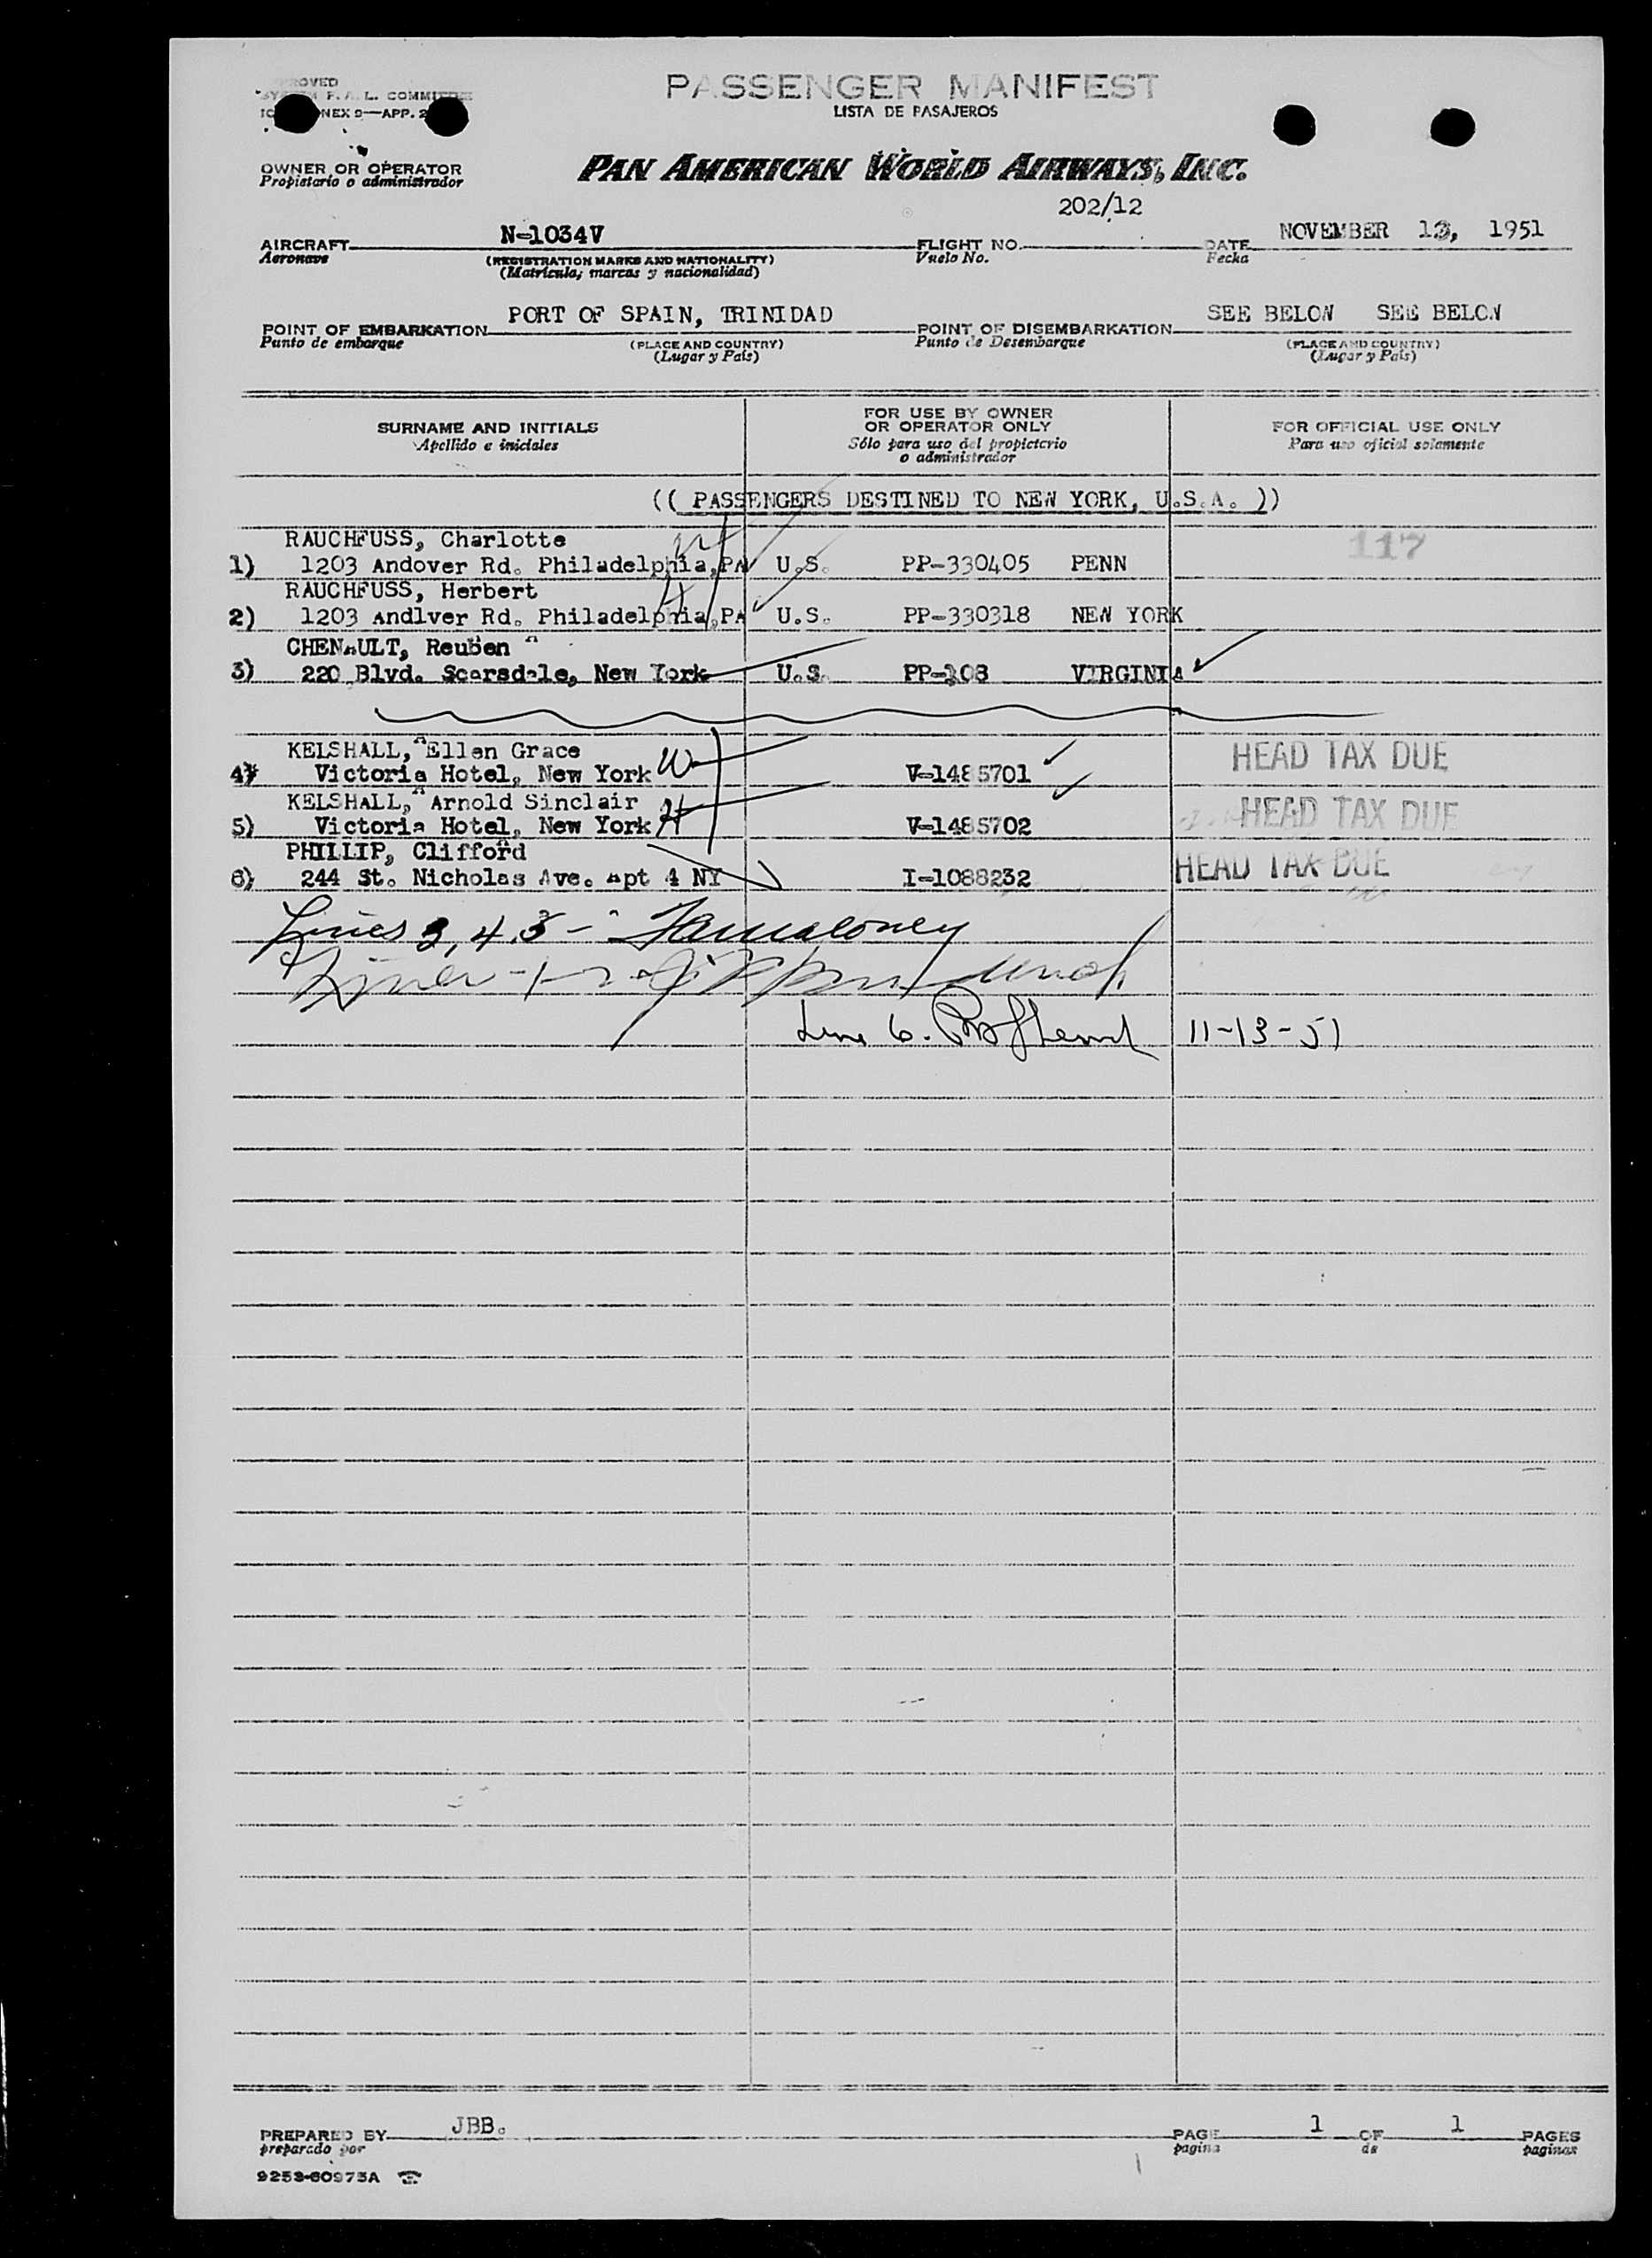 PASSENGER MANIFEST
LISTA DE PASAJEROS
F. A. L. COMMITTEE
NEX 9—APP. 2
OWNER OR OPERATOR
Propietario o administrador
PAN AMERICAN WORLD AIRWAYS, INC.
202/12
AIRCRAFT N-1034V FLIGHT NO. DATE NOVEMBER 13, 1951
Aeronave (REGISTRATION MARKS AND NATIONALITY) Vuelo No. Fecha
(Matrícula; marcas y nacionalidad)
POINT OF EMBARKATION PORT OF SPAIN, TRINIDAD POINT OF DISEMBARKATION SEE BELOW SEE BELOW
Punto de embarque (PLACE AND COUNTRY) Punto de Desembarque (PLACE AND COUNTRY)
(Lugar y País) (Lugar y País)
SURNAME AND INITIALS FOR USE BY OWNER OR OPERATOR ONLY FOR OFFICIAL USE ONLY
Apellido e iniciales Sólo para uso del propietario o administrador Para uso oficial solamente
(( PASSENGERS DESTINED TO NEW YORK, U.S.A. ))
RAUCHFUSS, Charlotte W 117
1) 1203 Andover Rd. Philadelphia,PA U.S. PP-330405 PENN
RAUCHFUSS, Herbert H
2) 1203 Andlver Rd. Philadelphia,PA U.S. PP-330318 NEW YORK
CHENAULT, Reuben
3) 220 Blvd. Scarsdale, New York U.S. PP-108 VIRGINIA
KELSHALL, Ellen Grace W HEAD TAX DUE
4) Victoria Hotel, New York V-1485701
KELSHALL, Arnold Sinclair HEAD TAX DUE
5) Victoria Hotel, New York H V-1485702
PHILLIP, Clifford HEAD TAX DUE
6) 244 St. Nicholas Ave. Apt 4 NY I-1088232
Lines 3, 4, 5 -
Line 6. 11-13-51
PREPARED BY JBB. PAGE 1 OF 1 PAGES
preparado por pagina de paginas
9253-60973A